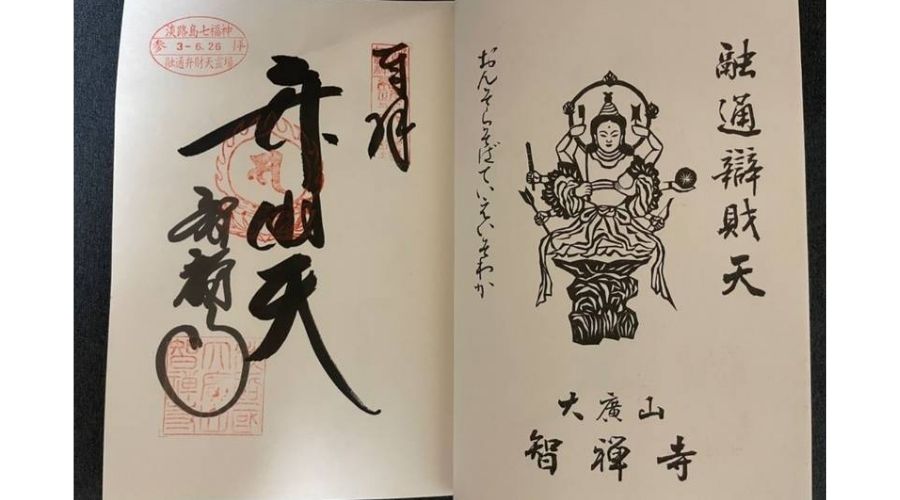 淡路島七福神
参 3-6.26 拝
融通弁財天霊場
奉拝
弁財天
智禅寺
融通辯財天
おんそらそばていえいそわか
大廣山
智禅寺